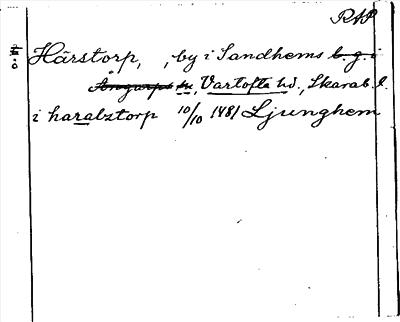 RAP
Härstorp, , by i Sandhems b. g. i
Ångarps sn, Vartofta hd., Skarab. l.
i haralztorp 10/10 1481 Ljunghem